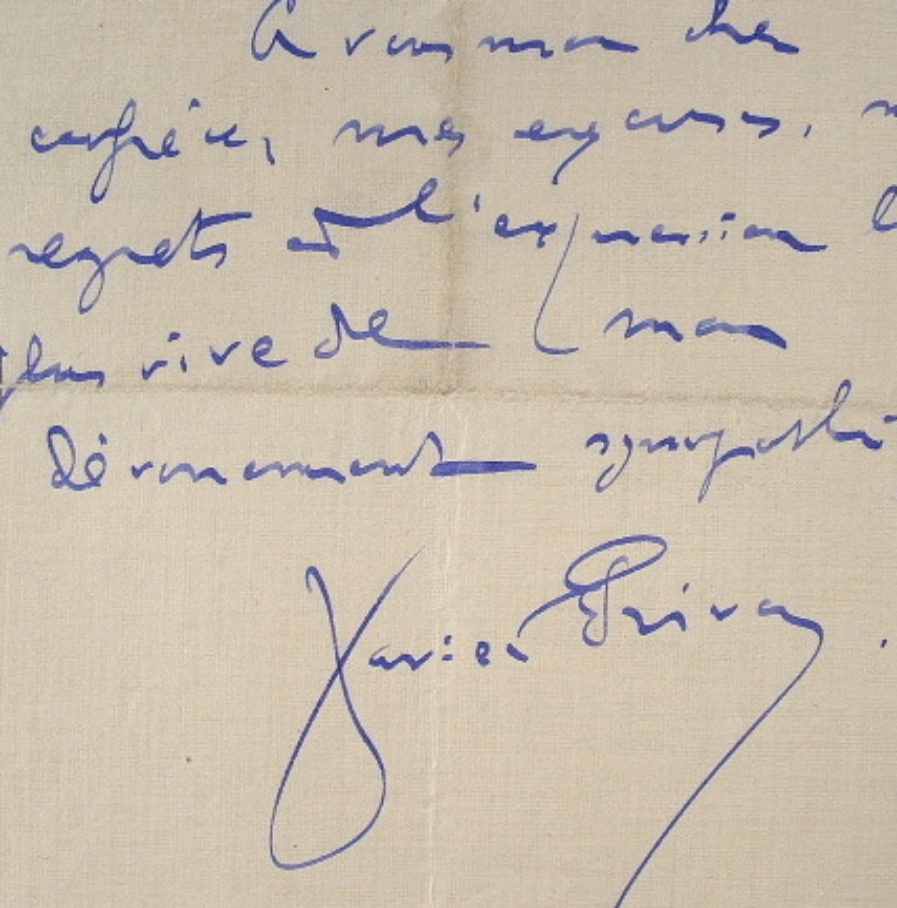 A vous mon cher
confrère, mes excuses,
regrets et l'expression
plus vive de mon
dévouement sympathi
Xavier Privas